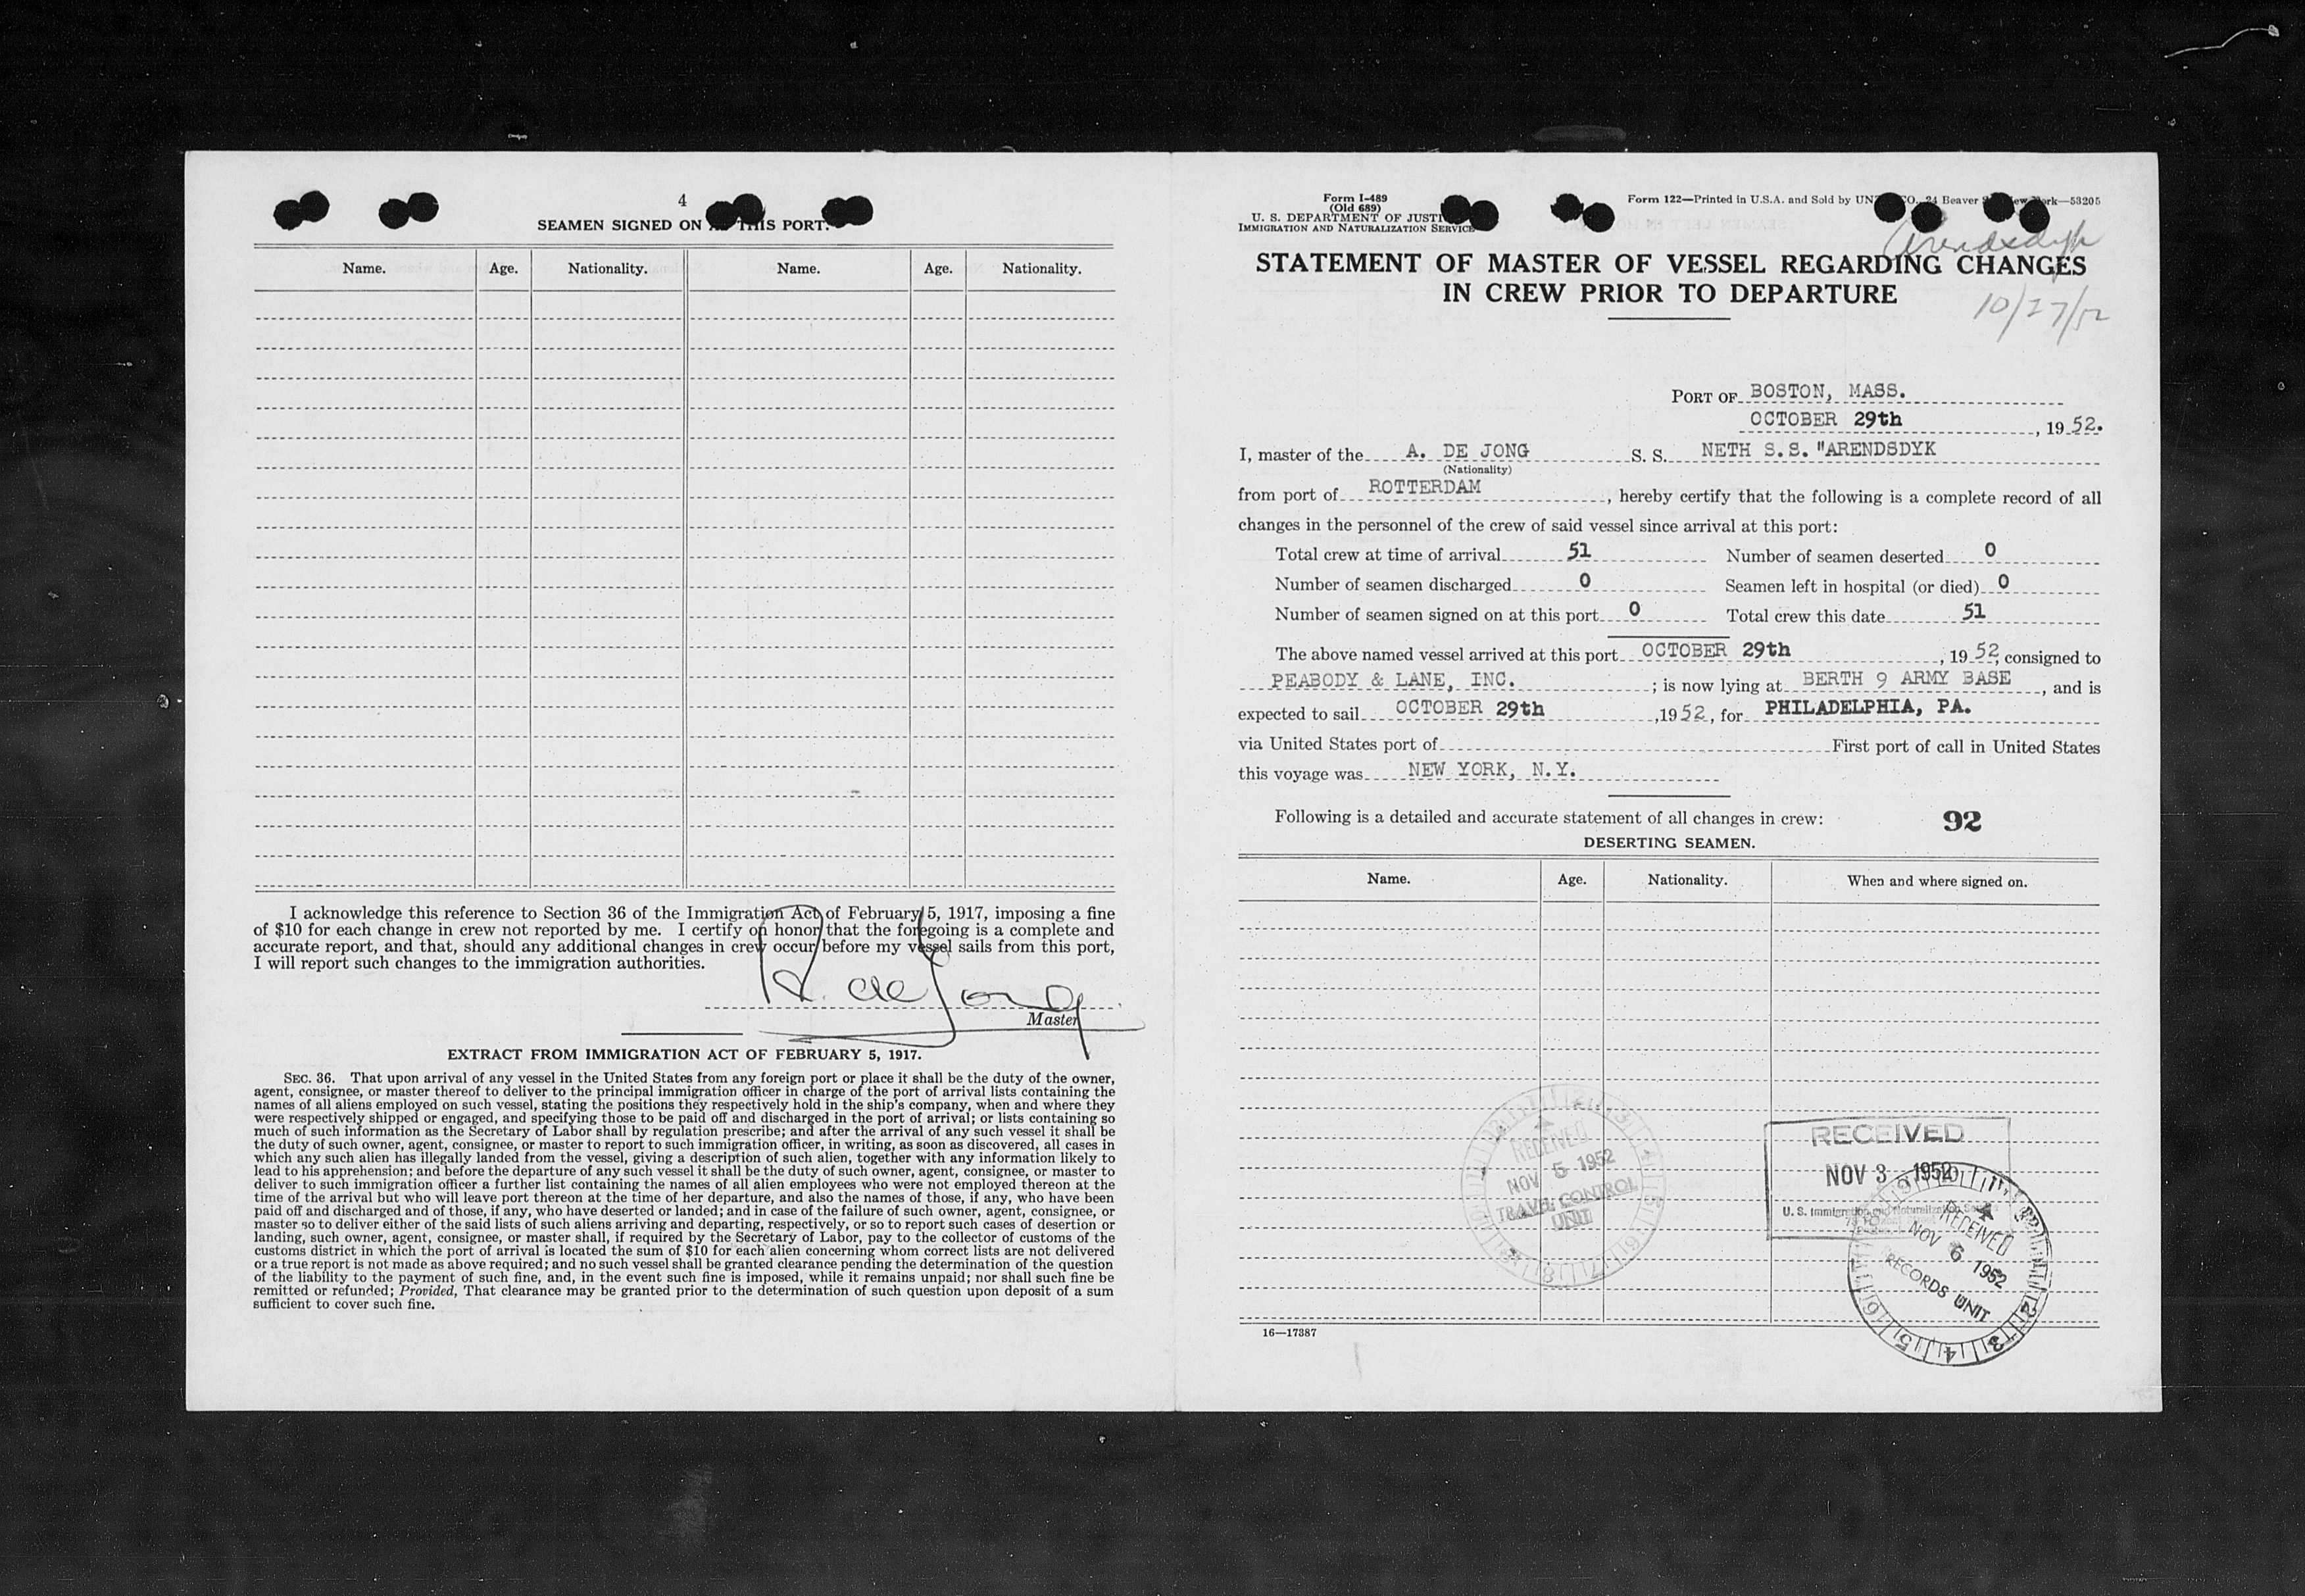 4
SEAMEN SIGNED ON AT THIS PORT.
Name. Age. Nationality. Name. Age. Nationality.
I acknowledge this reference to Section 36 of the Immigration Act of February 5, 1917, imposing a fine
of $10 for each change in crew not reported by me. I certify on honor that the foregoing is a complete and
accurate report, and that, should any additional changes in crew occur before my vessel sails from this port,
I will report such changes to the immigration authorities.
A. de Jong
Master
EXTRACT FROM IMMIGRATION ACT OF FEBRUARY 5, 1917.
SEC. 36. That upon arrival of any vessel in the United States from any foreign port or place it shall be the duty of the owner,
agent, consignee, or master thereof to deliver to the principal immigration officer in charge of the port of arrival lists containing the
names of all aliens employed on such vessel, stating the positions they respectively hold in the ship's company, when and where they
were respectively shipped or engaged, and specifying those to be paid off and discharged in the port of arrival; or lists containing so
much of such information as the Secretary of Labor shall by regulation prescribe; and after the arrival of any such vessel it shall be
the duty of such owner, agent, consignee, or master to report to such immigration officer, in writing, as soon as discovered, all cases in
which any such alien has illegally landed from the vessel, giving a description of such alien, together with any information likely to
lead to his apprehension; and before the departure of any such vessel it shall be the duty of such owner, agent, consignee, or master to
deliver to such immigration officer a further list containing the names of all alien employees who were not employed thereon at the
time of the arrival but who will leave port thereon at the time of her departure, and also the names of those, if any, who have been
paid off and discharged and of those, if any, who have deserted or landed; and in case of the failure of such owner, agent, consignee, or
master so to deliver either of the said lists of such aliens arriving and departing, respectively, or so to report such cases of desertion or
landing, such owner, agent, consignee, or master shall, if required by the Secretary of Labor, pay to the collector of customs of the
customs district in which the port of arrival is located the sum of $10 for each alien concerning whom correct lists are not delivered
or a true report is not made as above required; and no such vessel shall be granted clearance pending the determination of the question
of the liability to the payment of such fine, and, in the event such fine is imposed, while it remains unpaid; nor shall such fine be
remitted or refunded; Provided, That clearance may be granted prior to the determination of such question upon deposit of a sum
sufficient to cover such fine.
Form I-489
(Old 689)
U. S. DEPARTMENT OF JUSTI
IMMIGRATION AND NATURALIZATION SERVICE
Form 122—Printed in U.S.A. and Sold by UN CO. 24 Beaver ew York—53205
Arendsdyk
STATEMENT OF MASTER OF VESSEL REGARDING CHANGES
IN CREW PRIOR TO DEPARTURE
10/27/52
PORT OF BOSTON, MASS.
OCTOBER 29th, 19 52.
I, master of the A. DE JONG S. S. NETH S.S. "ARENDSDYK
(Nationality)
from port of ROTTERDAM, hereby certify that the following is a complete record of all
changes in the personnel of the crew of said vessel since arrival at this port:
Total crew at time of arrival 51 Number of seamen deserted 0
Number of seamen discharged 0 Seamen left in hospital (or died) 0
Number of seamen signed on at this port 0 Total crew this date 51
The above named vessel arrived at this port OCTOBER 29th, 19 52, consigned to
PEABODY & LANE, INC.; is now lying at BERTH 9 ARMY BASE, and is
expected to sail OCTOBER 29th, 1952, for PHILADELPHIA, PA.
via United States port of First port of call in United States
this voyage was NEW YORK, N.Y.
Following is a detailed and accurate statement of all changes in crew: 92
DESERTING SEAMEN.
Name. Age. Nationality. When and where signed on.
RECEIVED
NOV 5 1952
TRAVEL CONTROL
UNIT
RECEIVED
NOV 3 1952
U. S. Immigration and Naturalization
RECEIVED
NOV 6 1952
RECORDS UNIT
16—17387